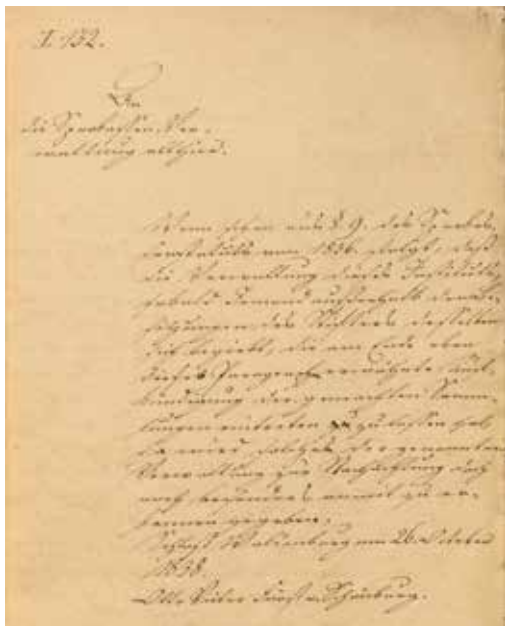 I. 132.
An
die Sparkassen-Ver-
waltung allhier.
Wenn schon aus § 9. des Sparkas-
senstatuts von 1836. folgt, daß
die Verwaltung dieses Instituts,
sobald Jemand außerhalb den
Besitzungen des Stifters desselben
sich begiebt, die am Ende eben
dieses Paragraph erwähnte
der gemachten Samm-
lungen eintreten zu lassen hat,
so wird solches der genannten
Verwaltung zur Nachachtung doch
noch besonders anmit zu er-
kennen gegeben.
Schloß Waldenburg am 26. October
1838.
Otto Victor Fürst v. Schönburg.